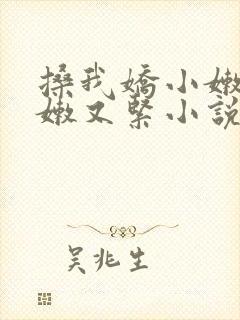 搡我嬌小嫩
嫩又緊小說
吳兆生